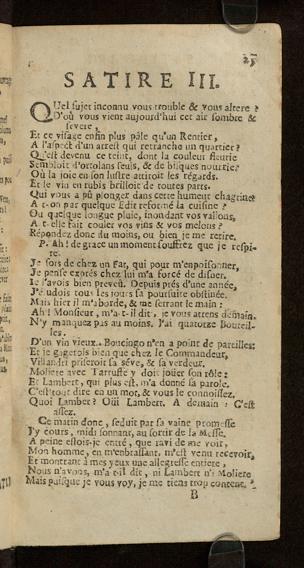 25
SATIRE III.
QUel sujet inconnu vous trouble & vous altere ?
D'où vous vient aujourd'hui cet air sombre &
severe,
Et ce visage enfin plus pâle qu'un Rentier,
A l'aspect d'un arrest qui retranche un quartier ?
Qu'est devenu ce teint, dont la couleur fleurie
Sembloit d'ortolans seuls, & de bisques nourrie?
Où la joie en son lustre attiroit les régards.
Et le vin en rubis brilloit de toutes parts.
Qui vous a pû plonger dans cette humeur chagrine?
A t-on par quelque Edit reformé la cuisine ?
Ou quelque longue pluie, inondant vos vallons,
A t-elle fait couler vos vins & vos melons ?
Répondez donc du moins, ou bien je me retire.
P. Ah! de grace un moment souffrez que je respi-
re.
Je sors de chez un Fat, qui pour m'enpoisonner,
Je pense exprés chez lui m'a forcé de disner,
Je l'avois bien preveu. Depuis prés d'une année,
J'éludois tous les jours sa poursuite obstinée.
Mais hier il m'aborde, & me serrant la main :
Ah ! Monsieur, m'a-t-il dit, je vous attens demain.
N'y manquez pas au moins. J'ai quatorze Bouteil-
les.
D'un vin vieux.. Boucingo n'en a point de pareilles:
Et je gagerois bien que chez le Commandeur,
Villandri priseroit sa séve, & sa verdeur.
Moliere avec Tartuffe y doit jouer son rôle:
Et Lambert, qui plus est, m'a donné sa parole.
C'est tout dire en un mot, & vous le connoissez.
Quoi Lambert? Oüi Lambert. A demain : C'est
assez.
Ce matin donc, seduit par sa vaine promesse
J'y cours, midi sonnant, au sortir de la Messe.
A peine estois-je entré, que ravi de me voir,
Mon homme, en m'enbrassant, m'est venu recevoir,
Et montrant à mes yeux une allegresse entiere,
Nous n'avons, m'a t-il dit, ni Lambert ni Moliere
Mais puisque je vous voy, je me tiens trop content.
B